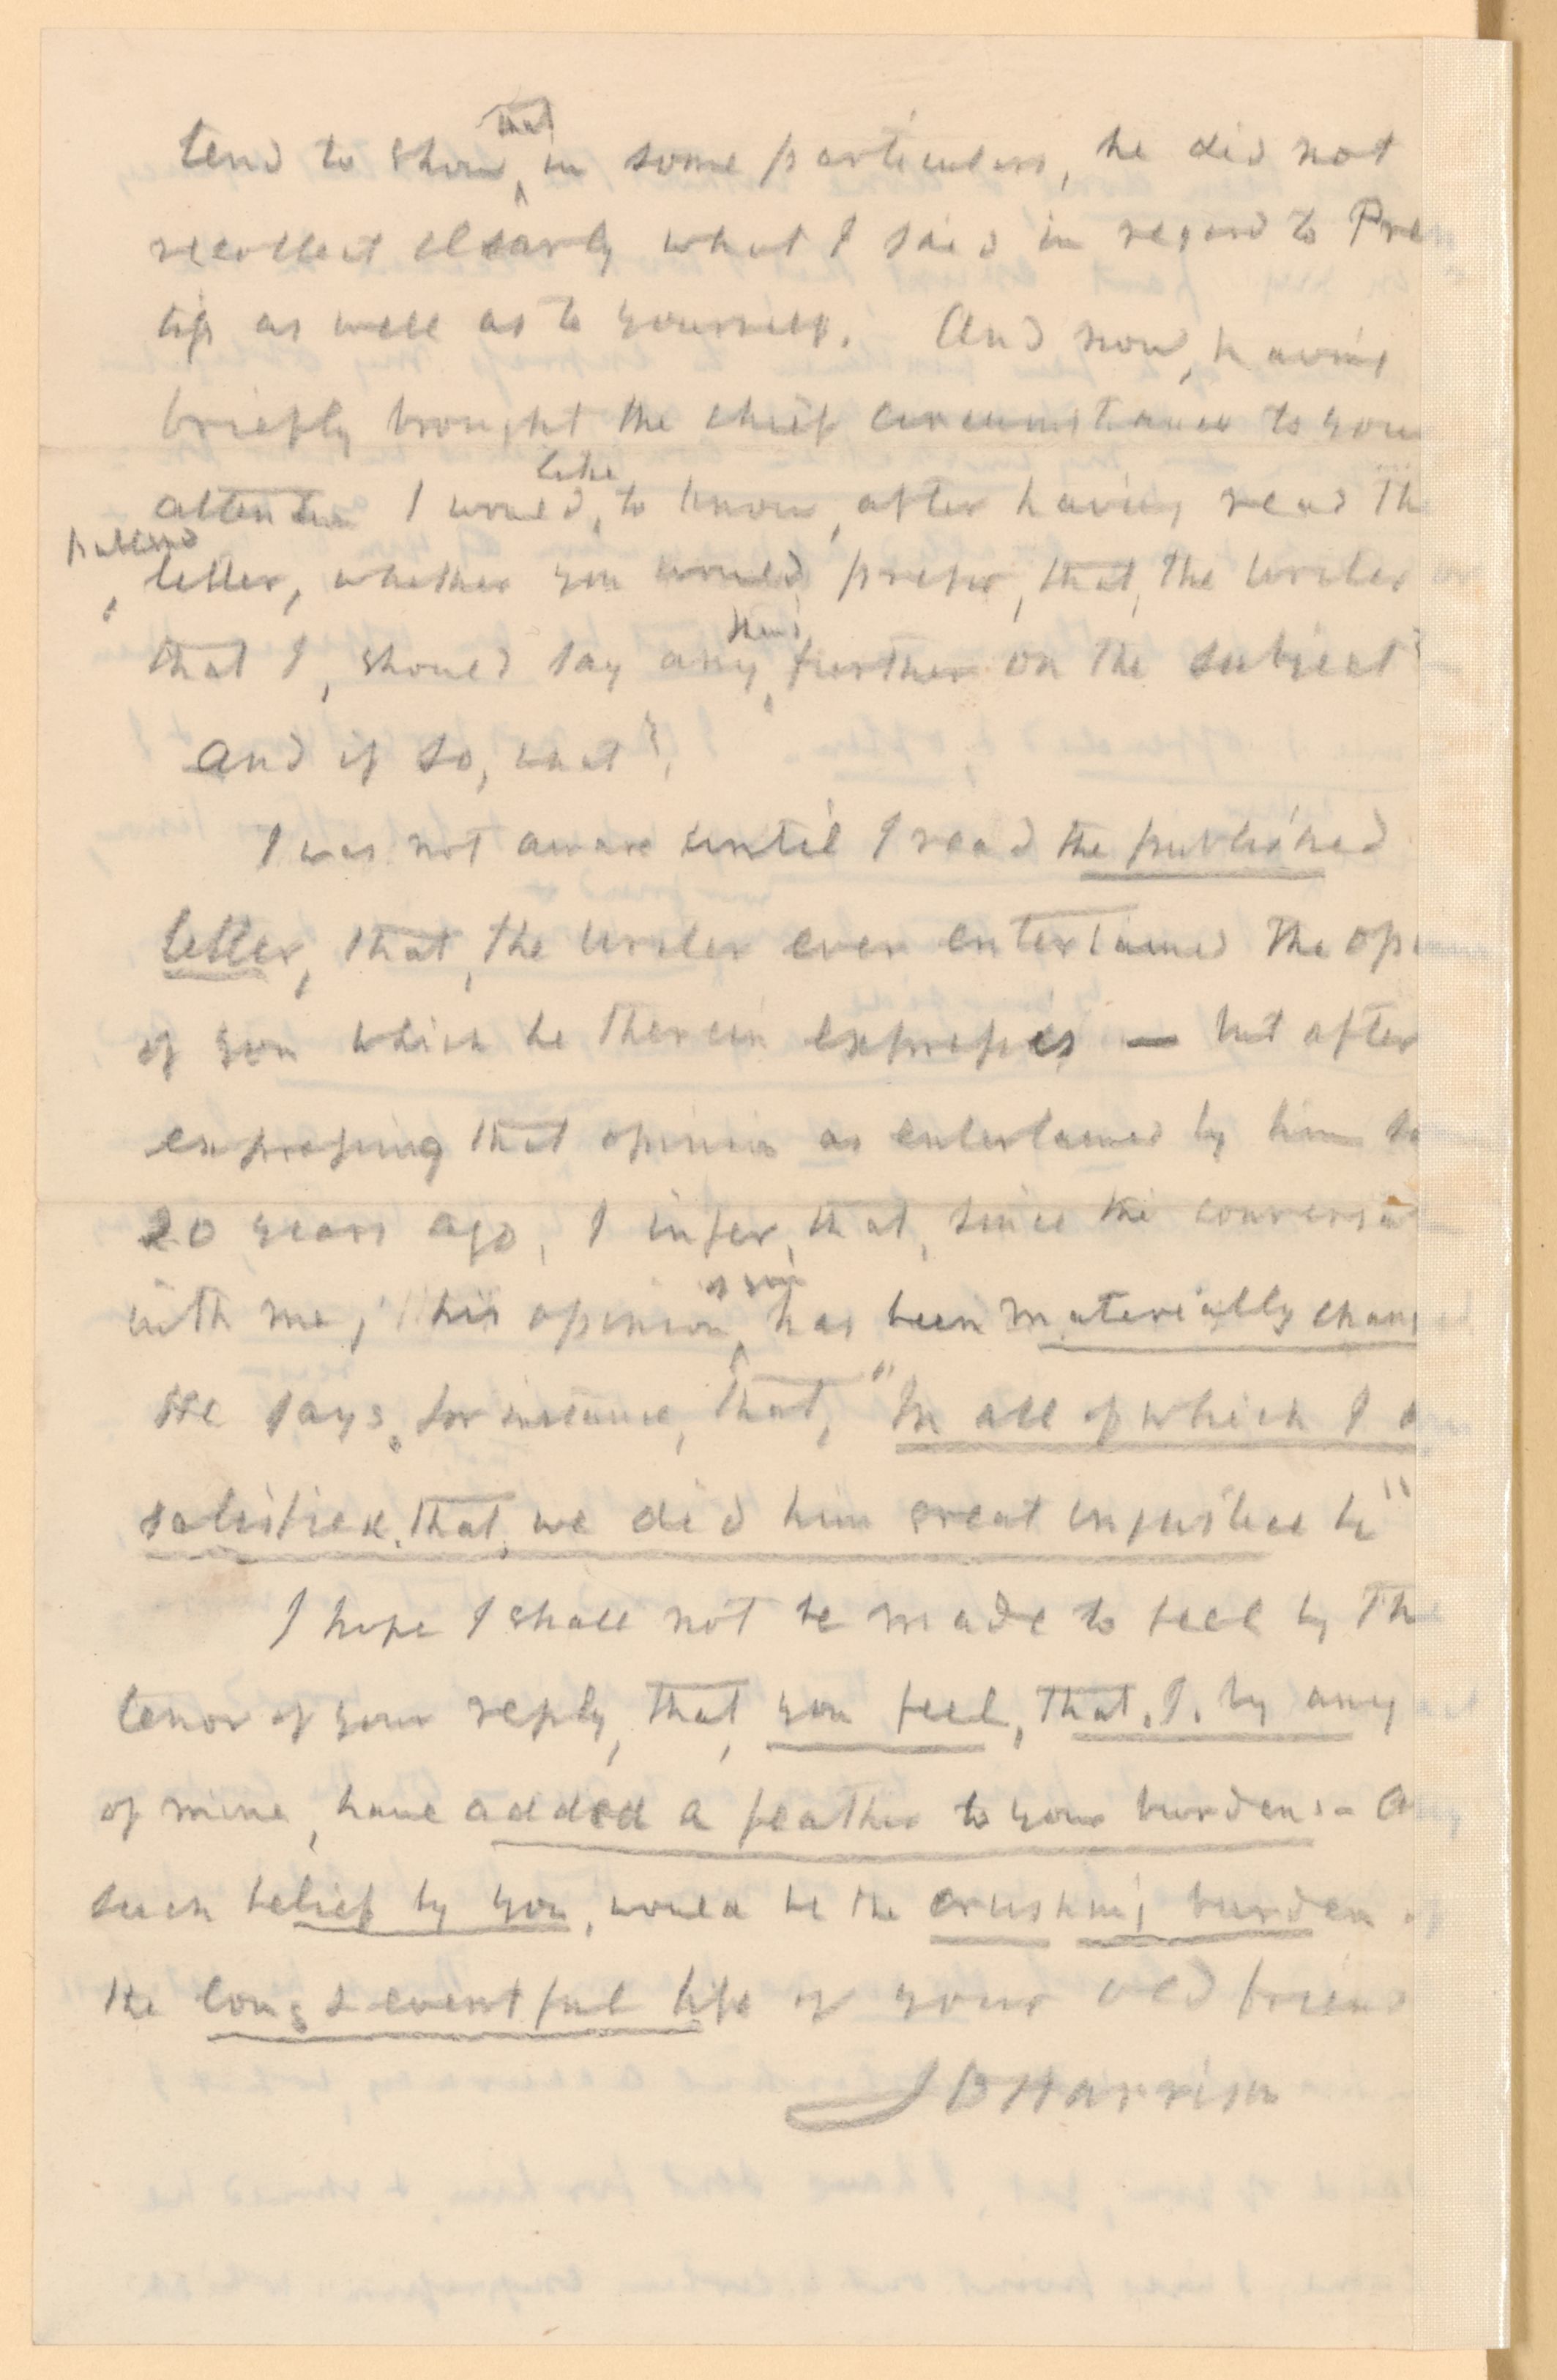 tend to show that in some particulars, he did not
recollect clearly what I said in regard to Pren
tip as well as to yourself. And now, having
briefly brought the chief circumstances to your
attention I would, like to know, after having read the
published letter, whether you would prefer, that, the writer or
that I, should say anything further on the subject?
and if so, what?
I was not aware until I read the published
letter, that, the writer ever entertained the opinion
of you which he therein expresses — but after
expressing that opinion as entertained by him so
20 years ago, I infer, that, since the conversa
with me, his opinion has been materially changed
He says, for instance, that, "In all of which I a
satisfied, that, we did him great injustice &c"
I hope I shall not be made to feel by the
tenor of your reply, that, you feel, that, I, by any act
of mine, have added a feather to your burdens - Any
such belief by you, would be the crushing burden of
the long & eventful life of your old friend
J B Harrison